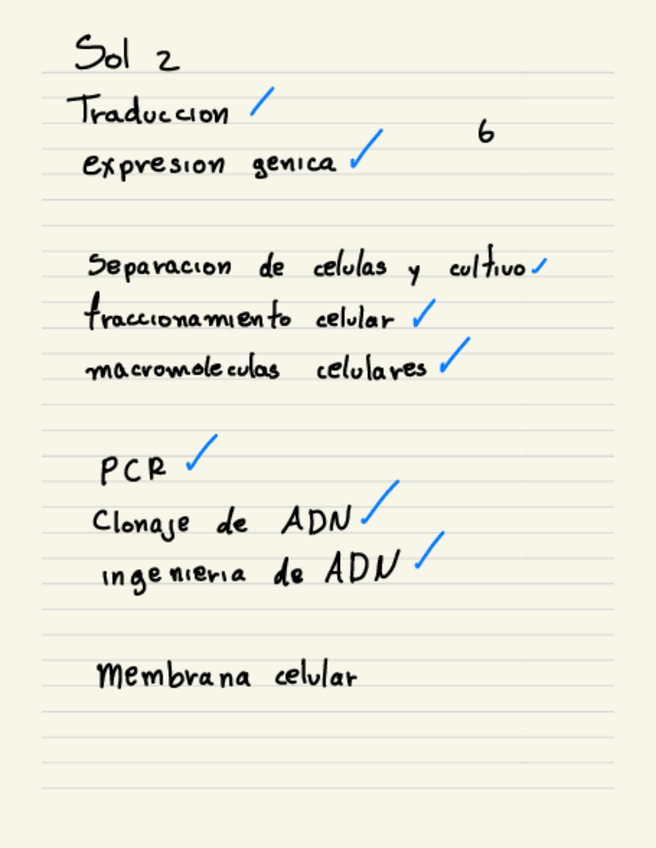 Sol 2
Traduccion ✓
6
expresion genica ✓
Separacion de celulas y cultivo ✓
fraccionamiento celular ✓
macromoleculas celulares ✓
PCR ✓
Clonaje de ADN ✓
ingenieria de ADN ✓
Membrana celular